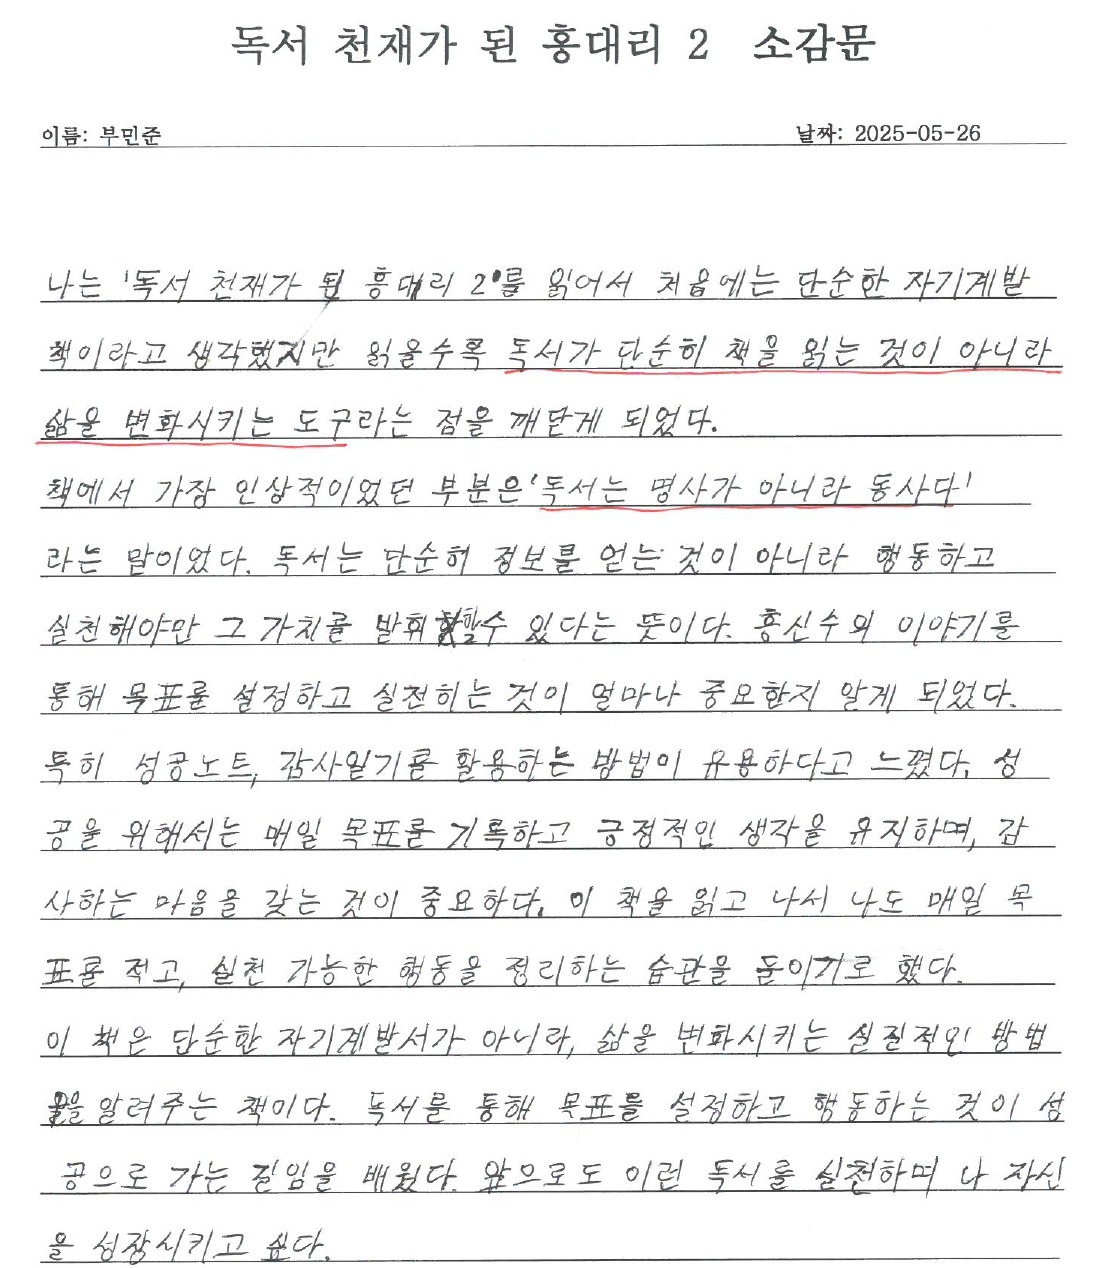 독서 천재가 된 홍대리 2 소감문
이름: 부민준 날짜: 2025-05-26
나는 '독서 천재가 된 홍대리 2'를 읽어서 처음에는 단순한 자기계발
책이라고 생각했지만 읽을수록 독서가 단순히 책을 읽는 것이 아니라
삶을 변화시키는 도구라는 점을 깨닫게 되었다.
책에서 가장 인상적이었던 부분은 '독서는 명사가 아니라 동사다'
라는 말이었다. 독서는 단순히 정보를 얻는 것이 아니라 행동하고
실천해야만 그 가치를 발휘할수 있다는 뜻이다. 홍신수의 이야기를
통해 목표를 설정하고 실천하는 것이 얼마나 중요한지 알게 되었다.
특히 성공노트, 감사일기를 활용하는 방법이 유용하다고 느꼈다. 성
공을 위해서는 매일 목표를 기록하고 긍정적인 생각을 유지하며, 감
사하는 마음을 갖는 것이 중요하다. 이 책을 읽고 나서 나도 매일 목
표를 적고, 실천 가능한 행동을 정리하는 습관을 들이기로 했다.
이 책은 단순한 자기계발서가 아니라, 삶을 변화시키는 실질적인 방법
을 알려주는 책이다. 독서를 통해 목표를 설정하고 행동하는 것이 성
공으로 가는 길임을 배웠다. 앞으로도 이런 독서를 실천하며 나 자신
을 성장시키고 싶다.